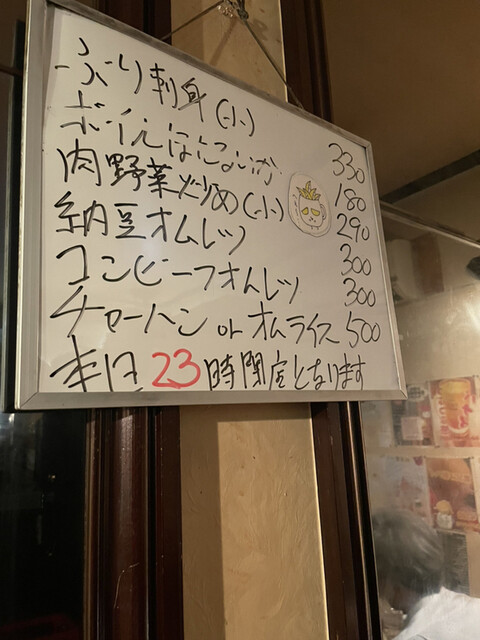 ぶり刺身(小) 330
ボイルほたるいか 180
肉野菜炒め(小) 290
納豆オムレツ 300
コンビーフオムレツ 300
チャーハン or オムライス 500
本日23時閉店となります